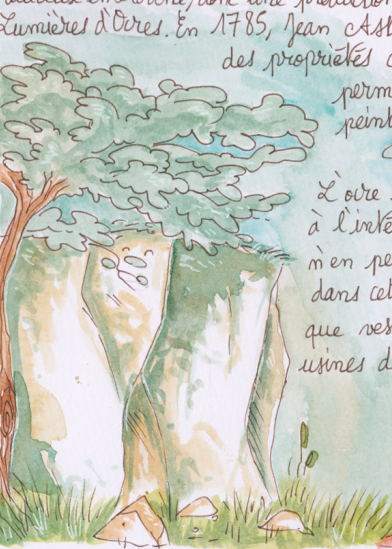 Lumières d'Ocres. En 1785, Jean Ast
des propriétés
perm
peint
L'ocre
à l'inté
n'en pe
dans cet
que ves
usines d